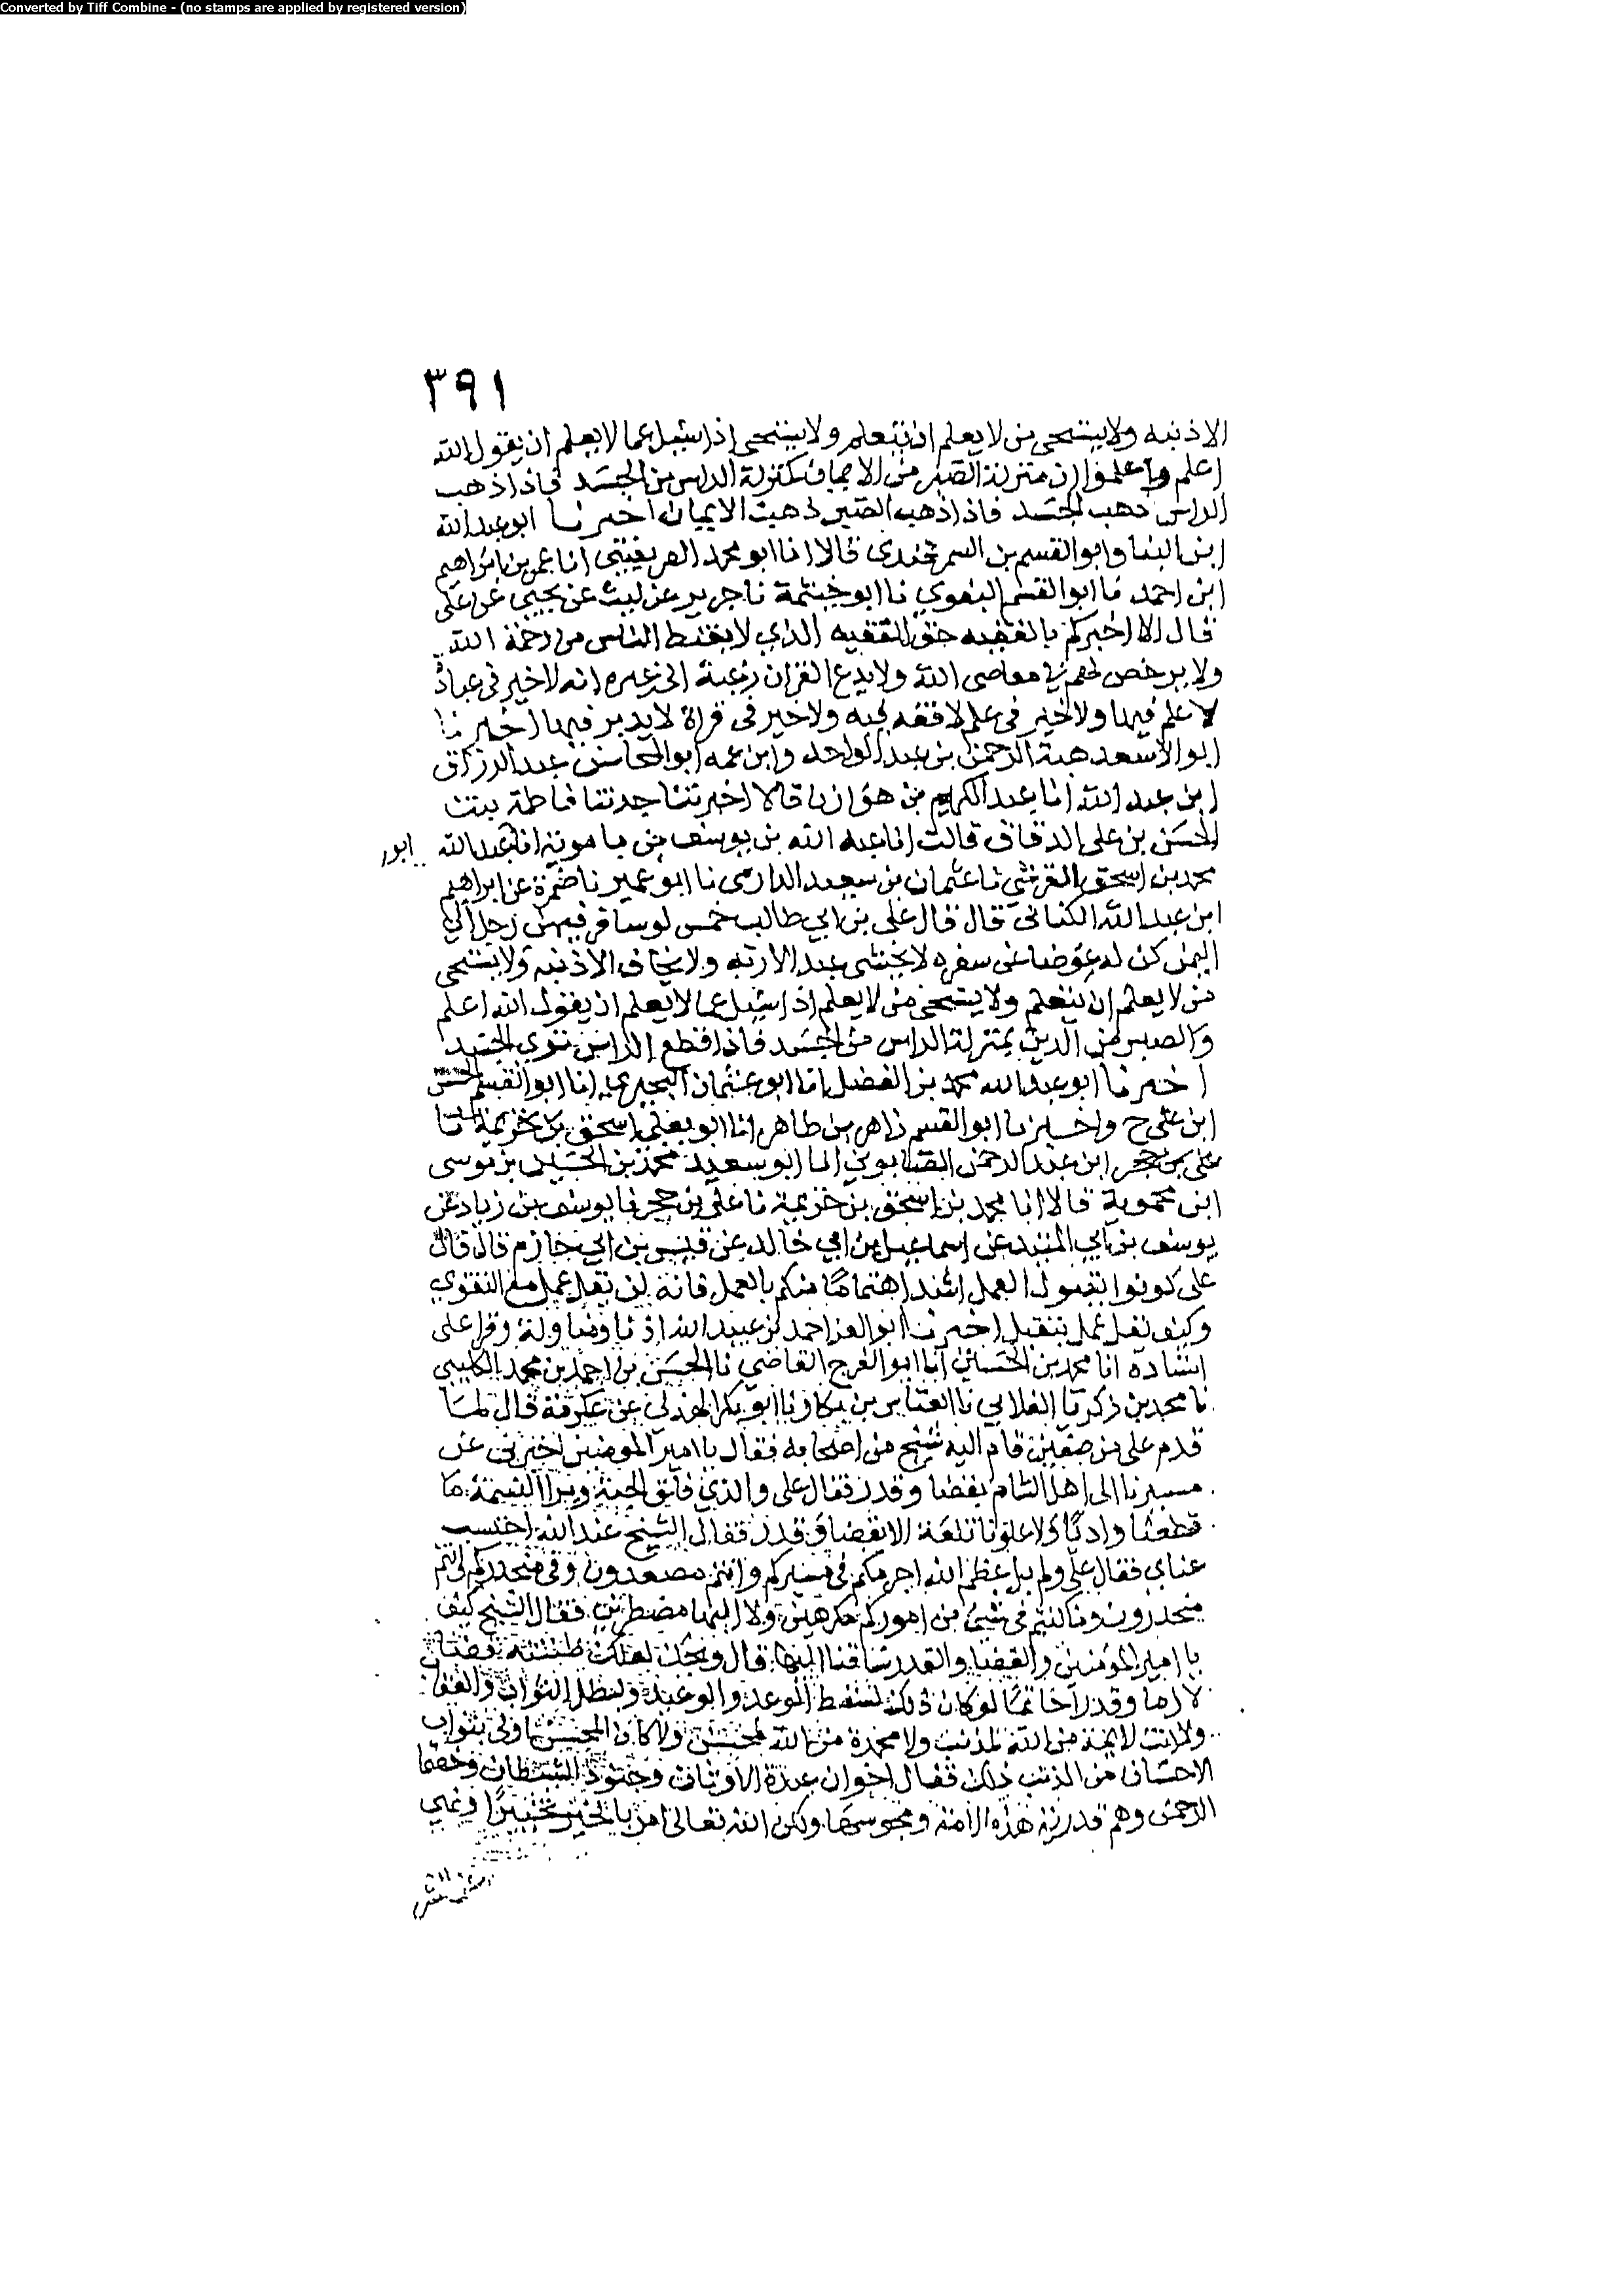 Converted by Tiff Combine - (no stamps are applied by registered version)
٣٩١
الا ذنبه ولا يستحي من لا يعلم ان يتعلم ولا يستحي اذا سيل عما لا يعلم ان يقول الله
اعلم واعلموا ان منزلة الصبر من الايمان كمنزلة الراس من الجسد فاذا ذهب
الراس ذهب الجسد فاذا ذهب الصبر ذهبت الايمان اخبرنا ابو عبد الله
ابن البنا وابو القسم بن السمرقندي قالا انا ابو محمد الصريفيني انا عمر بن ابراهيم
ابن احمد نا ابو القسم البغوي نا ابو خيثمة نا جرير عن ليث عن يحيي عن علي
قال الا اخبركم بالفقيه حق الفقيه الذي لا يقنط الناس من رحمة الله
ولا يرخص لهم في معاصي الله ولا يدع القران رغبة الى غيره انه لا خير في عبادة
لا علم فيها ولا خير في علم لا فقه فيه ولا خير في قراة لا يدبر فيها اخبرنا
ابو الاسعد هبة الرحمن بن عبد الواحد وابن عمه ابو المحاسن عبد الرزاق
ابن عبد الله انا عبد الكريم بن هوازن قالا اخبرتنا جدتنا فاطمة بنت
الحسن بن علي الدقاق قالت انا عبد الله بن يوسف بن مامويه انا عبد الله
ابو
محمد بن اسحق القرشي نا عثمان بن سعيد الدارمي نا ابو عمير نا ضمرة عن ابراهيم
ابن عبد الله الكناني قال قال علي بن ابي طالب خمس لو سافر فيهن رجل الي
اليمن كن له عوضا عن سفره لا يخشى عبد الا ربه ولا يخاف الا ذنبه ولا يستحي
من لا يعلم ان يتعلم ولا يستحي من لا يعلم اذا سيل عما لا يعلم ان يقول الله اعلم
والصبر من الدين بمنزلة الراس من الجسد فاذا قطع الراس توي الجسد
اخبرنا ابو عبد الله محمد بن الفضل انا ابو عثمان البحيري انا ابو القسم الحسن
ابن علي ح واخبرنا ابو القسم زاهر بن طاهر انا ابو يعلي اسحق بن خزيمة نا
علي بن حجر ابن عبد الرحمن الصابوني انا ابو سعيد محمد بن الحسين بن موسى
ابن محمويه قالا انا محمد بن اسحق بن خزيمة نا علي بن حجر نا يوسف بن زياد عن
يوسف بن ابي المتيد عن اسماعيل بن ابي خالد عن قيس بن ابي حازم قال قال
علي كونوا بقبول العمل اشد اهتماما منكم بالعمل فانه لن يقل عمل مع التقوي
وكيف يقل عمل يتقبل اخبرنا ابو العز احمد بن عبيد الله اذنا ومناولة وقرا علي
اسناده انا محمد بن الحسين انا ابو الفرج القاضي نا الحسن بن احمد بن محمد الكلبي
نا محمد بن زكريا الغلابي نا العباس بن بكار نا ابو بكر الهذلي عن عكرمة قال لما
قدم علي من صفين قام اليه شيخ من اصحابه فقال يا امير المومنين اخبرني عن
مسيرنا الى اهل الشام بقضا وقدر فقال علي والذي فلق الحبة وبرا النسمة ما
قطعنا واديا ولا علونا تلعة الا بقضا وقدر فقال الشيخ عند الله احتسب
عناي فقال علي ولم بل عظم الله اجركم في مسيركم وانتم مصعدون وفي منحدركم وانتم
منحدرون وما كنتم في شي من اموركم مكرهين ولا اليها مضطرين فقال الشيخ كيف
يا امير المؤمنين والقضا والقدر ساقنا اليها قال ويحك لعلك ظننته قضا
لازما وقدرا حاتما لو كان ذلك لسقط الوعد والوعيد وبطل الثواب والعقاب
ولا اتت لايمة من الله لمذنب ولا محمدة من الله لمحسن ولا كان المحسن اولى بثواب
الاحسان من المذنب ذلك فقال اخوان عبدة الاوثان وجنود الشيطان وخصما
الرحمن وهم قدرية هذه الامة ومجوسها ولكن الله تعالى امر بالخير تخييرا ونهي